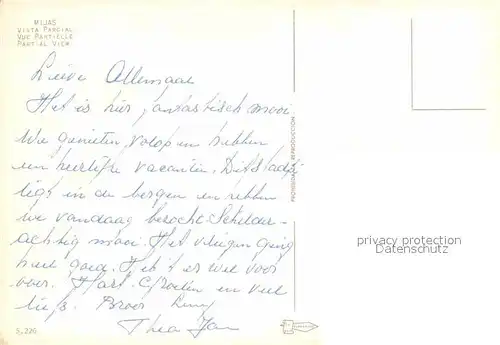 MIJAS
VISTA PARCIAL
VUE PARTIELLE
PARTIAL VIEW
Lieve Allemaal
Het is hier fantastisch mooi
We genieten volop en hebben
een heerlijke vacantie. Dit stadje
ligt in de bergen en hebben
we vandaag bezocht. Schilder-
achtig mooi. Het vliegen ging
heel goed. Heb 't er wel voor
over. Hart. Groeten en veel
liefs. Broer
Thea Jan
PROHIBIDA LA REPRODUCCION
privacy protection
Datenschutz
S, 220